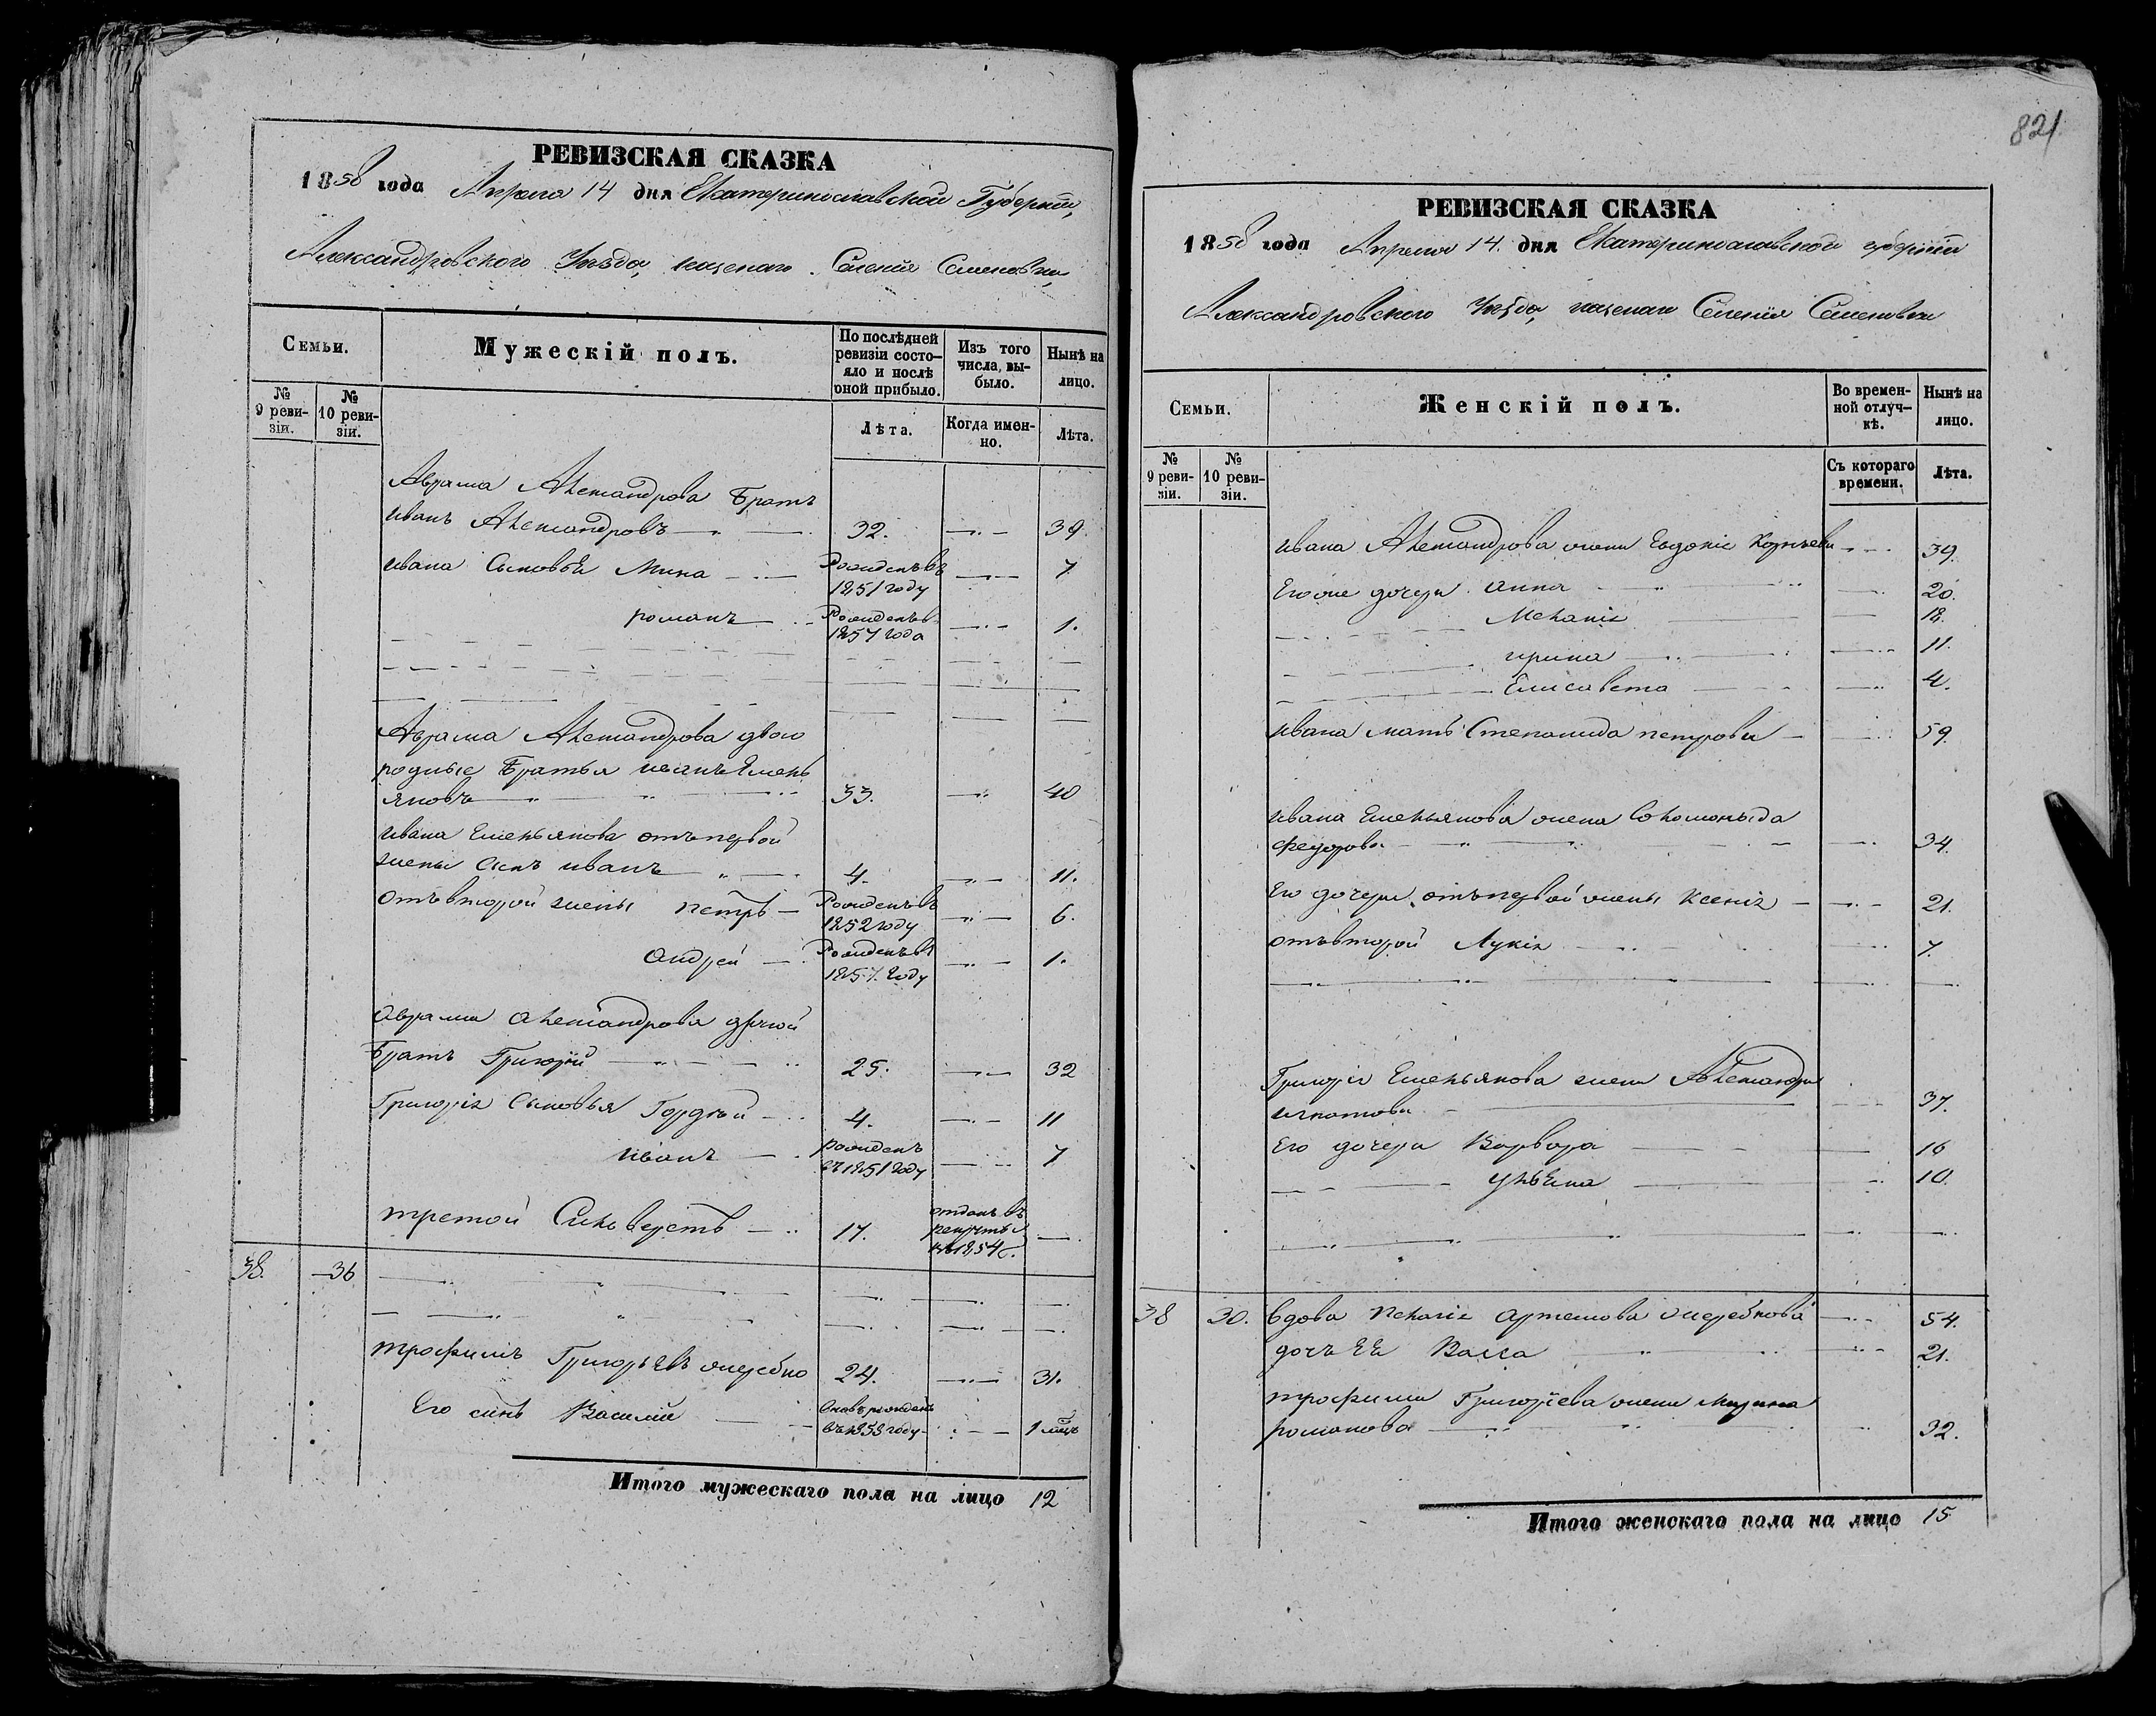 821
РЕВИЗСКАЯ СКАЗКА
1858 года Апреля 14 дня Екатеринославской Губернiи,
Александровского Уезда, казенаго Селенiя Семеновки
Семьи.
Мужескiй полъ.
По послѣдней ревизiи состо-
яло и послѣ
оной прибыло.
Изъ того
числа, вы-
было.
Нынѣ на
лицо.
№
9 реви-
зiи.
№
10 реви-
зiи.
Лѣта.
Когда имен-
но.
Лѣта.
Аврама Александрова Братъ
иванъ Александровъ 32. 39
ивана Сыновьи Мина Рожденъ въ 1851 году 7
романъ Рожденъ въ 1857 года 1.
Аврама Александрова двою
родные Братья иванъ Емель
яновъ 33. 40
ивана Емельянова отъ первой
жены Сынъ иванъ 4. 11.
отъ второй жены петръ Рожденъ въ 1852 году 6.
андрей Рожденъ въ 1857 году 1.
аврама александрова другой
Братъ Григорiй 25. 32
Григорiя Сыновья Гордѣй 4. 11
иванъ рожденъ въ 1851 году 7
третой Сильверстъ 17. отданъ въ рекруты въ 1854 г.
38. 36
трофимъ Григорьевъ жеребко 24. 31.
Его сынъ Василiй рожденъ въ 1858 году 1 мѣць
Итого мужескаго пола на лицо 12
РЕВИЗСКАЯ СКАЗКА
1858 года Апреля 14. дня Екатеринославской губернiи
Александровского Уезда, казенаго Селенiя Семеновки
Семьи.
Женскiй полъ.
Во времен-
ной отлуч-
кѣ.
Нынѣ на
лицо.
№
9 реви-
зiи.
№
10 реви-
зiи.
Съ котораго
времени.
Лѣта.
ивана Александрова жена Евдокiя Корнѣева 39.
Его же дочери анна 20.
Меланiя 18.
ирина 11.
Елисавета 4.
ивана мать Степанида петрова 59.
ивана Емельянова жена Соломонида
федорова 34.
Его дочери отъ первой жены Ксенiя 21.
отъ второй Лукiя 7.
Григорiя Емельянова жена Александра
игнатова 37.
Его дочери Варвара 16
ульяна 10.
38 30. вдова пелагiя артемова жеребкова 54.
дочь ЕЯ Васса 21.
трофима Григорiева жена Марина
романова 32.
Итого женскаго пола на лицо 15